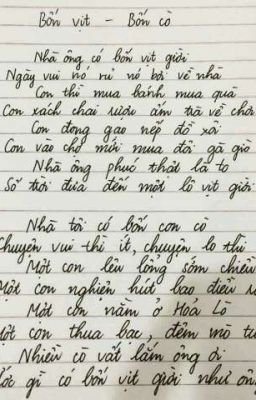 Bốn vịt - Bốn cò
Nhà ông có bốn vịt giời
Ngày vui nó rủ nó bơi về nhà
Con thì mua bánh mua quà
Con xách chai rượu ấm trà về chơi
Con đong gạo nếp đồ xôi
Con vào chợ mới mua đôi gà giò
Nhà ông phúc thật là to
Số trời đưa đến một lô vịt giời
Nhà tôi có bốn con cò
Chuyện vui thì ít, chuyện lo thì
Một con lêu lổng sớm chiều
Một con nghiện hút bao điều
Một con nằm ở Hoả Lò
Một con thua bạc, đêm mò
Nhiều cò vất lắm ông ơi
Ước gì có bốn vịt giời như ông